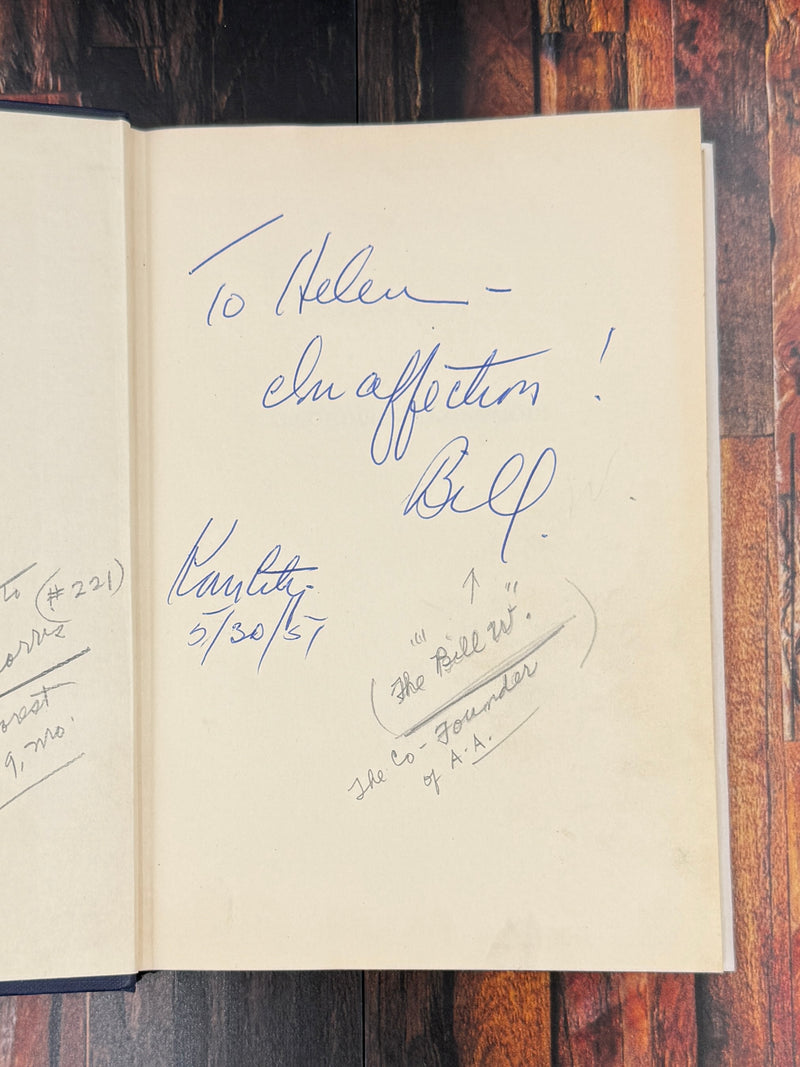 To Helen -
In affection !
Bill.
Kan City.
5/30/51
to (#221)
orris
orest
9, Mo.
↑
(""The Bill W.")
The Co-Founder
of A.A.